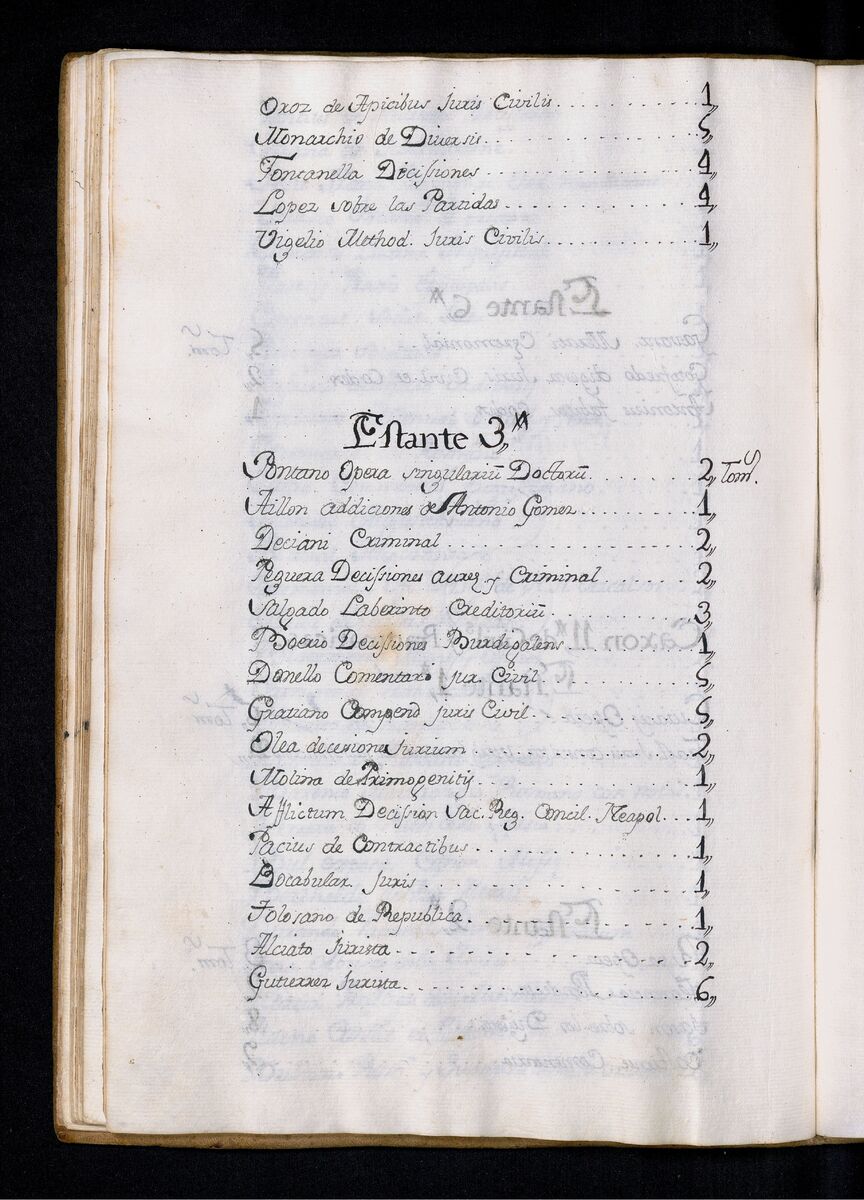 Oroz de Apicibus Juris Civilis .......... 1,,
Monarchio de Diversis .......... 5,,
Fontanella Decissiones .......... 4,,
Lopez sobre las Partidas .......... 4,,
Vigelio Method. Juris Civilis .......... 1,,
Estante 3,,ª
Pontano Opera singulariū Doctorū .......... 2,, Tomˢ.
Aillon addiciones de Antonio Gomez .......... 1,,
Deciani Criminal .......... 2,,
Peguera Decissiones aurez y Criminal .......... 2,,
Salgado Laberinto Creditoriū .......... 3,,
Boerio Decissiones Burdigalens .......... 1,,
Donello Comentaro jur. Civil .......... 5,,
Gratiano Compend juris Civil .......... 5,,
Olea decesiones Jurium .......... 2,,
Molina de Primogenitÿ .......... 1,,
Afflictum Decission Sac. Reg. Concil. Neapol .......... 1,,
Pacius de Contractibus .......... 1,,
Bocabular. Juris .......... 1,,
Tolosano de Republica .......... 1,,
Alciato Jurista .......... 2,,
Gutierrez Jurista .......... 6,,